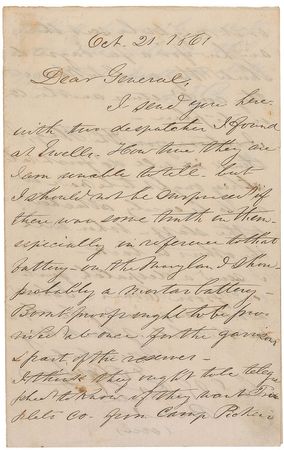 Oct. 21. 1861
Dear General,
I send you here-
with two despatches I found
at Ewells. How true they are
I am unable to tell - but
I should not be surprised if
there was some truth in them
especially in reference to that
battery - on the Maryland shore
probably a mortar battery -
Bomb proofs ought to be pro-
vided at once for the garrison
& part of the reserves -
I think they ought to be telegra
phed to know if they want
Co. from Camp Pickens